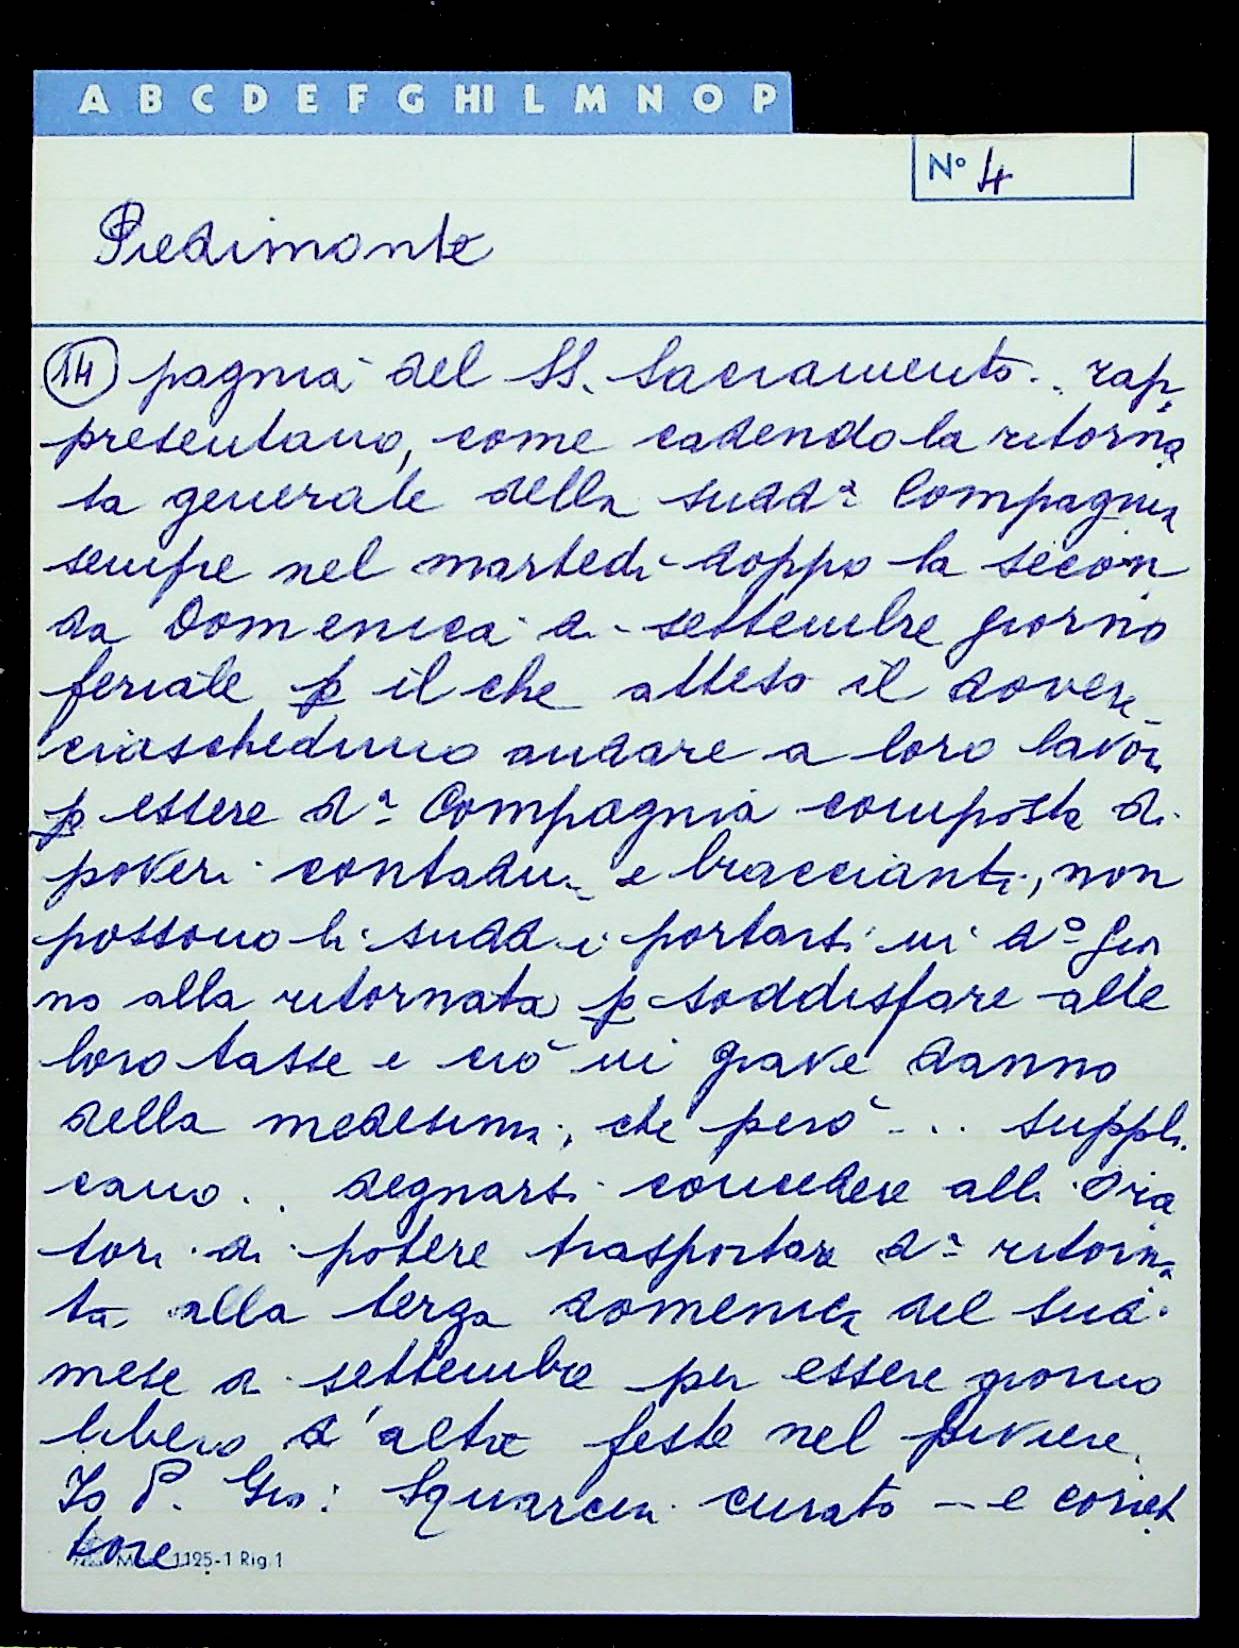 A B C D E F G HI L M N O P
N° 4
Piedimonte
(14) pagnia del SS. Sacramento .. rap
presentano, come cadendo la ritorna
ta generale della sudd.ª Compagnia
sempre nel martedi doppo la secon
da Domenica di settembre giorno
feriale p il che atteso il dovere
ciascheduno andare a loro lavori
p essere d.ª Compagnia composta di
poveri contadini e braccianti, non
possono li sudd.i portarsi in d.º gior
no alla ritornata p soddisfare alle
loro tasse e ciò in grave danno
della medesima, che però ... suppli
cano .. degnarsi concedere alli Ora
tori di potere trasportare d.ª ritorna
ta alla terza domenica del sud.
mese di settembre per essere giorno
libero d'altre feste nel piviere.
Io P. Gio: Squarcini curato – e coriet
tore
Mod. 1125-1 Rig.1